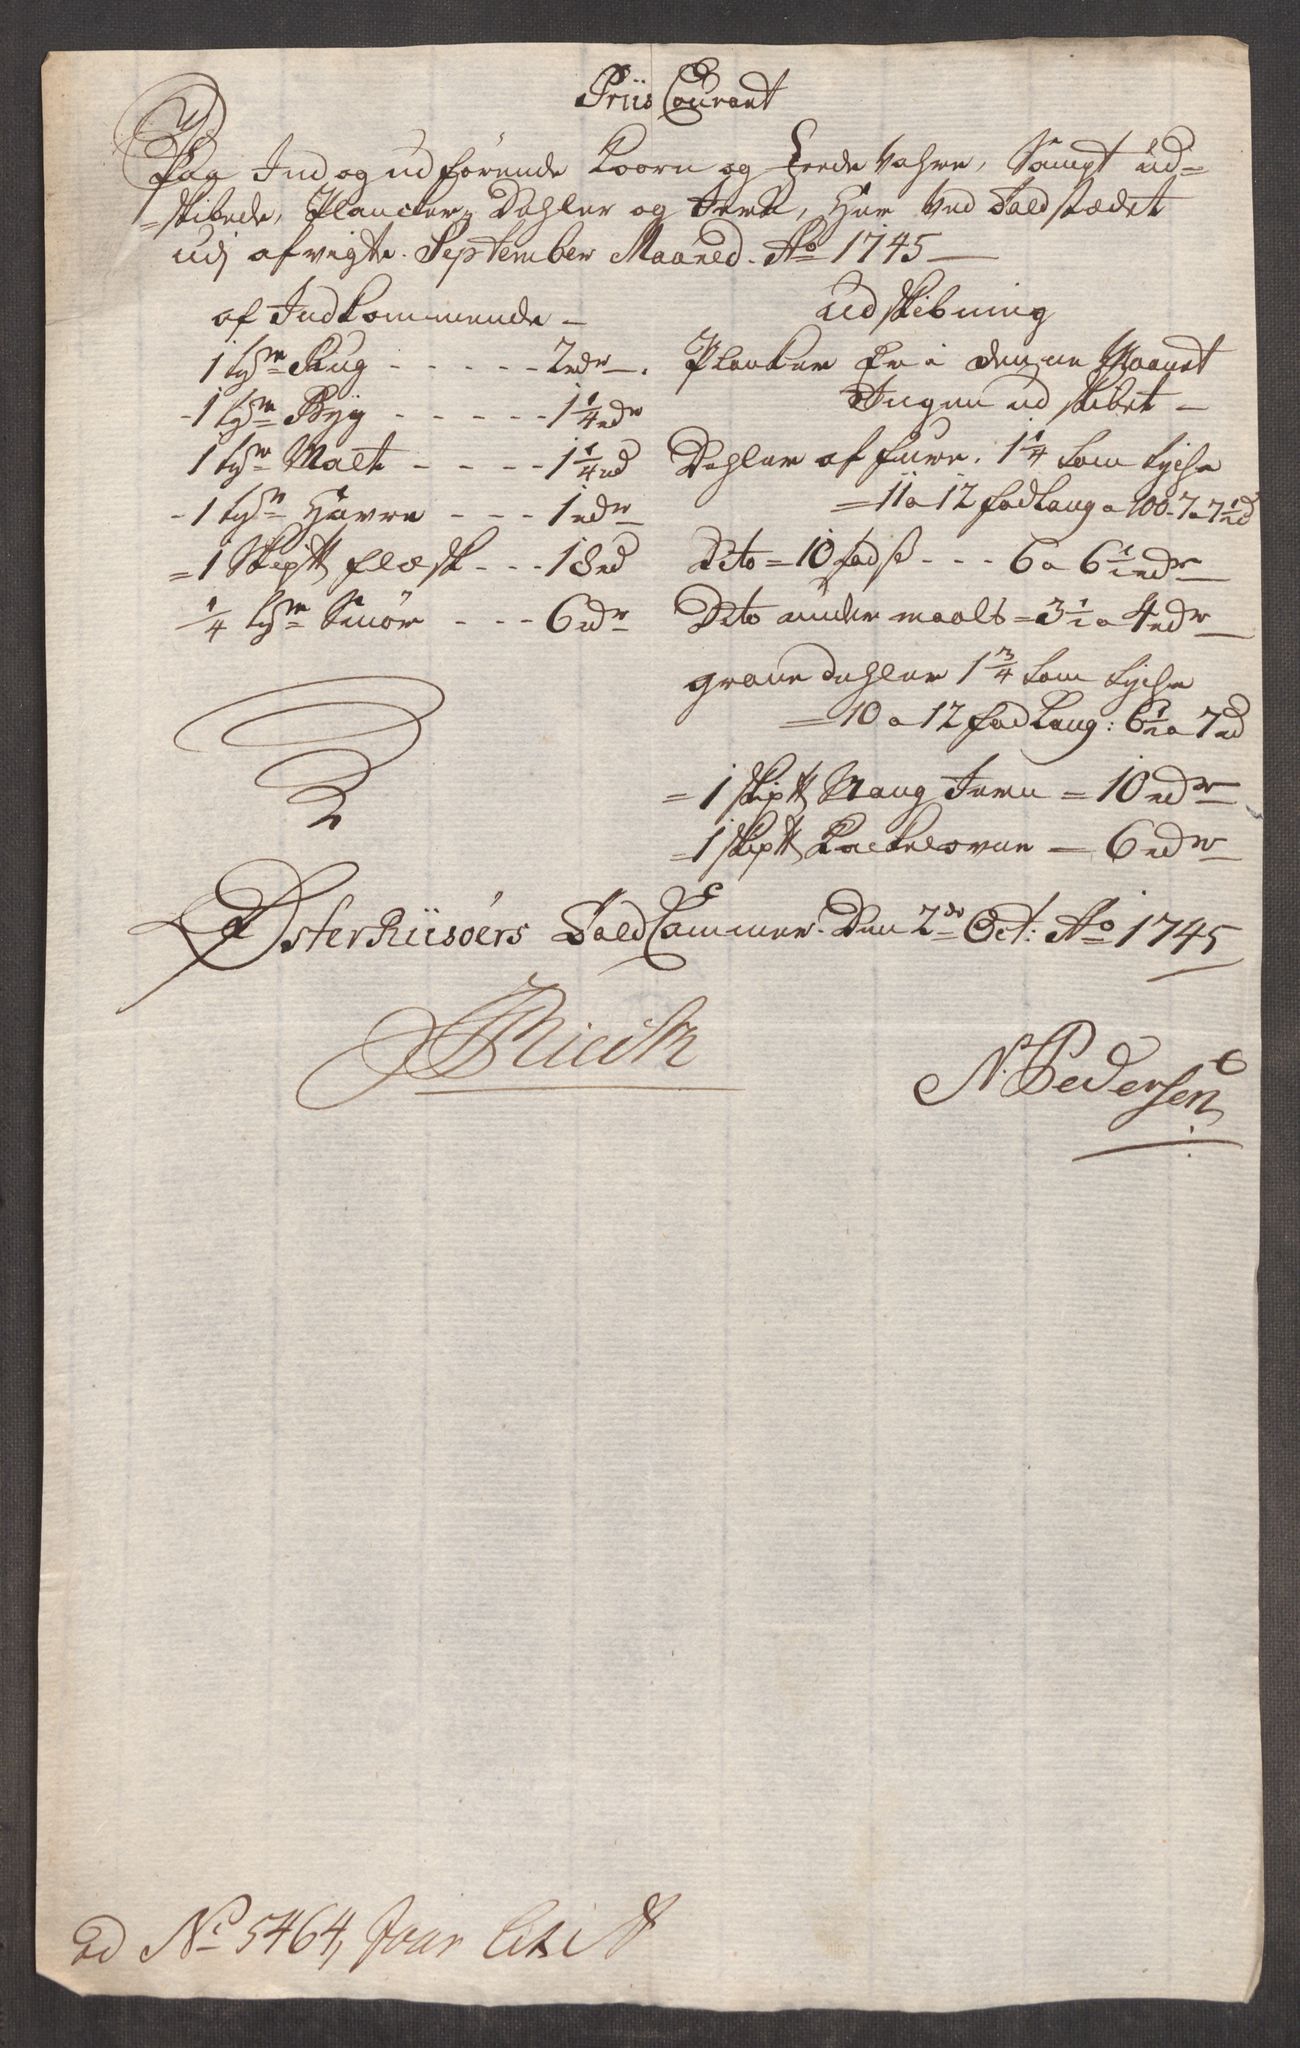 Priis Courant
Paa Ind og udförende Koorn og feede Vahre, Sampt ud=
=skibede, Plancker, Dehler og Jern, Her Ved Toldstædet
udj afvigte September Maaned Ao 1745
af Indkommende
1 tønde Rug - - - - - 2 rdr
1 tønde Byg - - - - - 1 1/4 rdr
1 tønde Malt - - - - 1 1/4 rd
1 tønde Havre - - - 1 rdr
1 Skip℔ flæsk - - - 18 rd
1/4 tønde Smör - - - 6 rdr
udskibning
Plancker Er i denne Maanet
Ingen udskibet
Dehler af furre. 1 1/4 tom tyche
= 11 a 12 fod Lang a 100 - 7 a 7 1/2 rd
Dito = 10 fods - - - 6 a 6 1/2 rdr
Dito under maals = 3 1/2 a 4 rdr
grane dehler 1 3/4 tom tyche
= 10 a 12 fod Lang: 6 1/2 a 7 rd
= 1 skip℔ Stang Jern = 10 rdr
= 1 skip℔ Kackelovne - 6 rdr
ØsterRiisöers Told Cammer. Den 2de Oct: Ao 1745
N. Pedersen
ad No 5464,